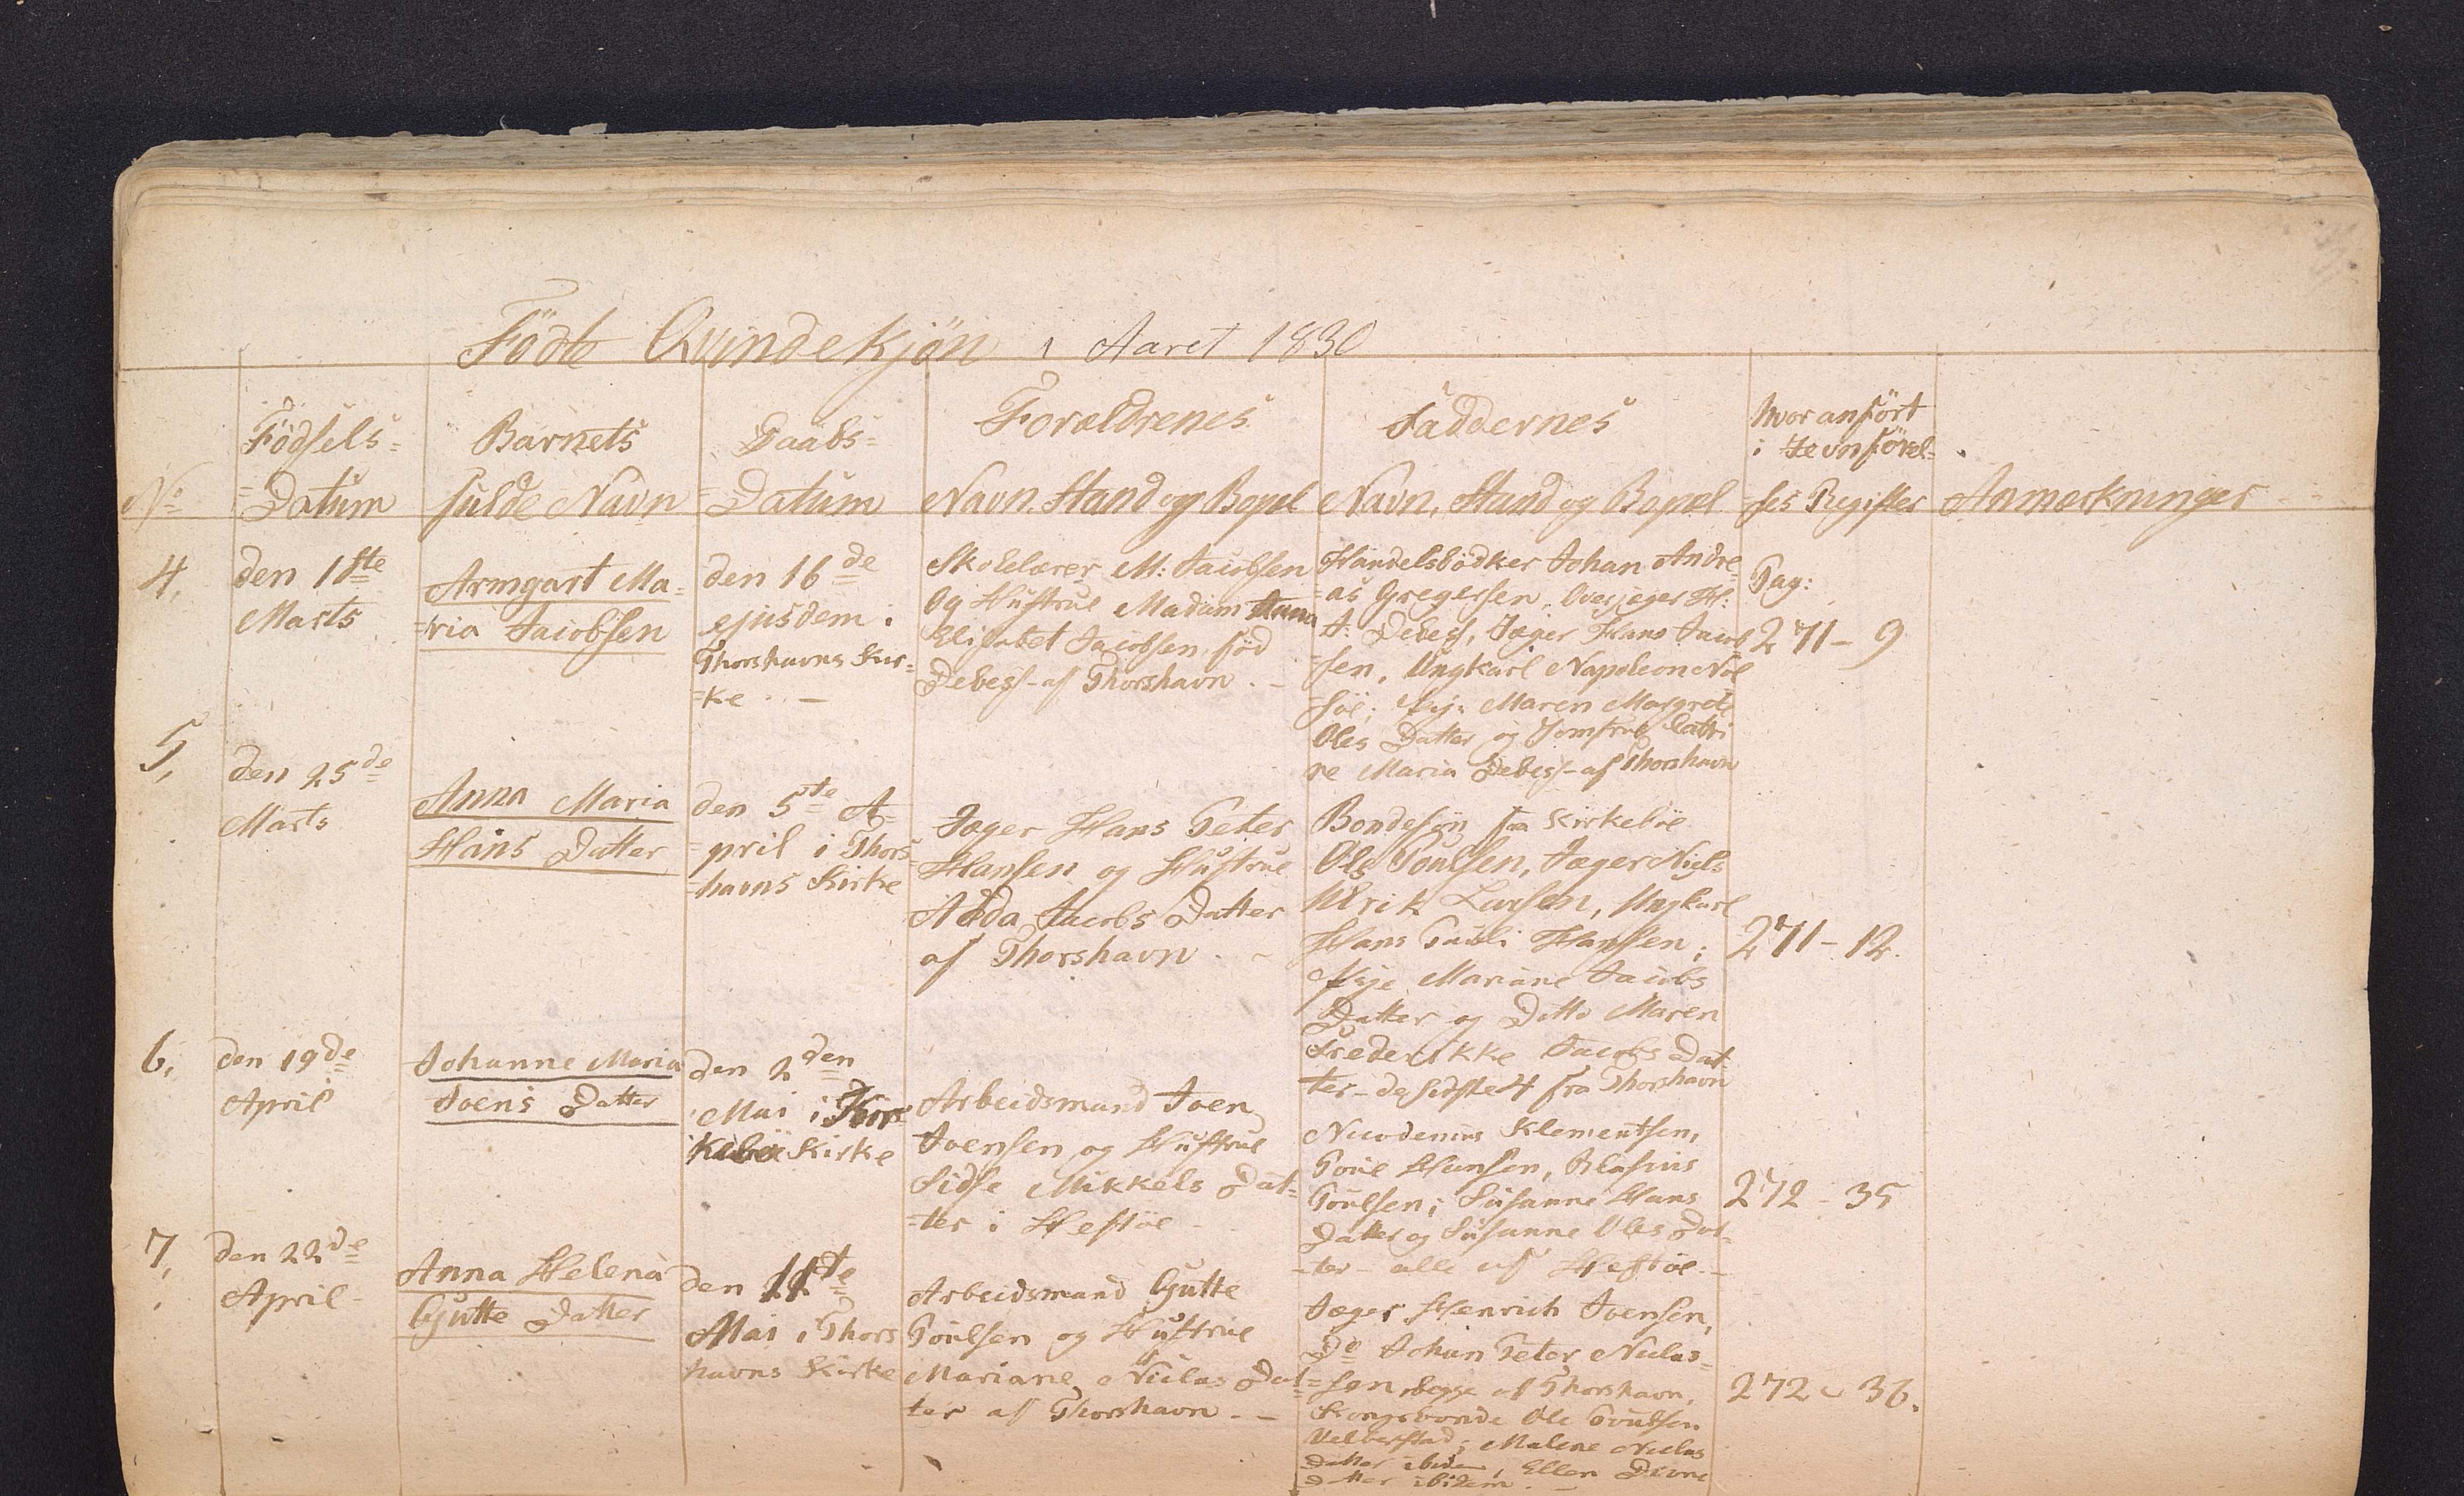 Födte Qvindekjön i Aaret 1830
No
Födsels-
=Datum
Barnets
fulde Navn
Daabs=
=Datum
Forældrenes
Navn, Stand og Bopæl
Faddernes
Navn, Stand og Bopæl
Hvor anfört
i Jevnförel=
ses Register
Anmærkninger
4,
den 1ste
Marts
Armgart Ma=
=ria Jacobsen
den 16de
ejusdem i
Thorshavns Kir=
=ke. —
Skolelærer M: Jacobsen
og Hustrue Madam Anna
Elisabet Jacobsen, föd
Debess- af Thorshavn. —
Handelsbödker Johan Andre=
=as Gregersen, Overjæger H:
J: Debess, Jæger Hans Jacob
=sen, Ungkarl Napoleon Nol
=söe; Pig: Maren Margrete
Oles Datter og Jomfrue Catri
ne Maria Debess- af Thorshavn
Pag:
271 - 9
5,
den 25de
Marts
Anna Maria
Hans Datter
den 5te A=
=pril i Thors=
=havns Kirke
Jæger Hans Peter
Hansen og Hustrue
Adda Jacobs Datter
af Thorshavn. —
Bondesön fra Kirkeböe
Ole Poulsen, Jæger Niels
Ulrik Larsen, Ungkarl
Hans Pauli Hansen;
Pige Mariane Jacobs
Datter og Ditto Maren
Frederikke Jacobs Dat
ter - de sidste 4 fra Thorshavn
271 - 12.
6,
den 19de
April
Johanne Maria
Joens Datter
den 2den
Mai i Kir
keböe Kirke
Arbeidsmand Joen
Joensen og Hustrue
Sidse Mikkels Dat=
=ter i Hestöe -
Nicodemus Klementsen,
Poul Hansen, Blasius
Poulsen; Susanne Hans
Datter og Susanne Oles Dat=
=ter - alle af Hestöe. -
272 - 35
7,
den 22de
April -
Anna Helena
Gutte Datter
den 11te
Mai i Thors
havns Kirke
Arbeidsmand Gutte
Poulsen og Hustrue
Mariane Niclas Dat=
ter af Thorshavn. —
Jæger Henrich Joensen,
Do Johan Peter Niclas=
=sen begge af Thorshavn,
Kongsbonde Ole Poulsen
Velberstad; Malene Niclas
Datter ibidem, Ellen
Datter ibidem. —
272 - 36.